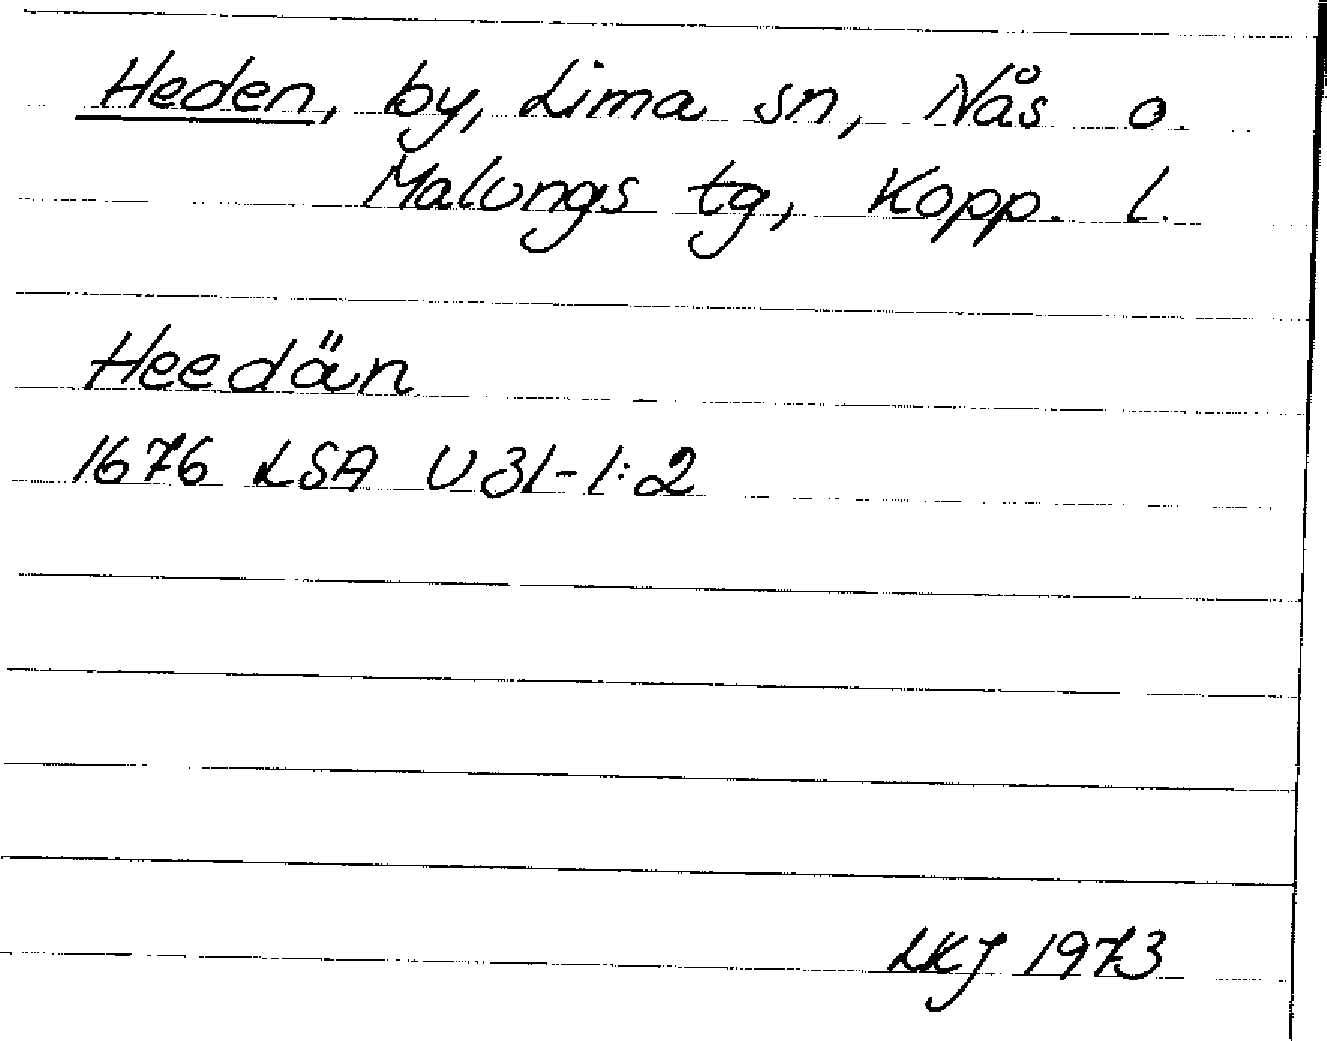 Heden, by, Lima sn, Nås o.
Malungs tg, Kopp. l.
Heedän
1676 LSA U31-1:2
LKJ 1973